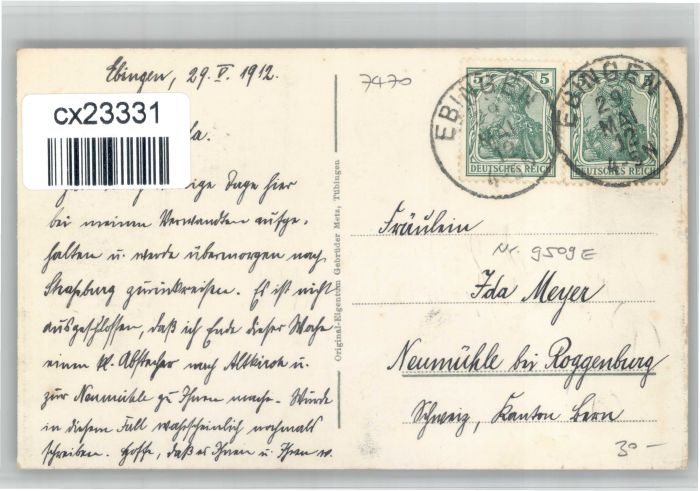 Ebingen, 29. V. 1912.
cx23331
la.
ige Tage hier
bei meinen Verwandten aufge-
halten u. werde übermorgen nach
Straßburg zurückreisen. Es ist nicht
ausgeschlossen, daß ich Ende dieser Woche
einen kl. Abstecher nach Altkirch u.
zur Neumühle zu Ihnen mache. Würde
in diesem Fall wahrscheinlich nochmals
schreiben. Hoffe, daß es Ihnen u. Ihren w.
Original-Eigentum Gebrüder Metz, Tübingen
7470
5 5
DEUTSCHES REICH
5
DEUTSCHES REICH
EBINGEN
29 MAI
EBINGEN
29 MAI
12
4-5N
Fräulein
Nr. 9509 E
Ida Meyer
Neumühle bei Roggenburg
Schweiz, Kanton Bern
30 –